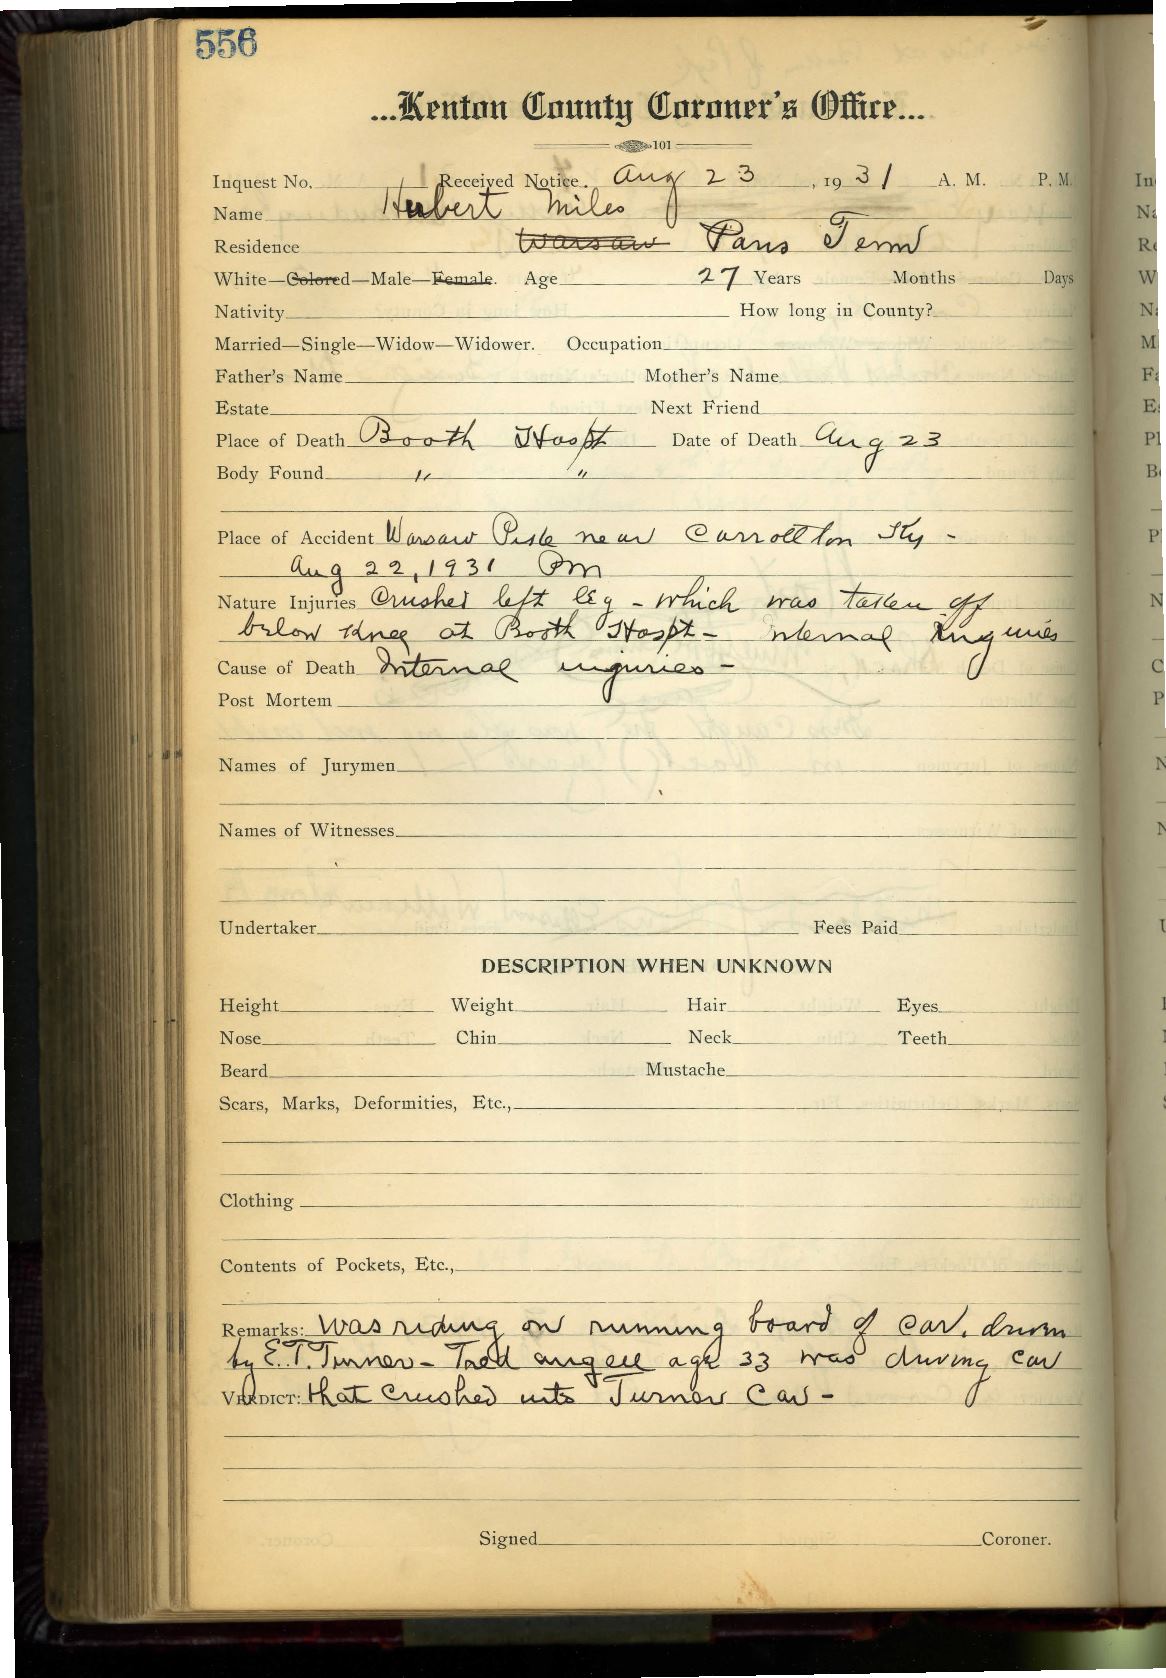 556
...Kenton County Coroner's Office...
101
Inquest No. Received Notice. Aug 23, 1931 A. M. P. M.
Name Hubert Miles
Residence Warsaw Paris Tenn
White—Colored—Male—Female. Age 27 Years Months Days
Nativity How long in County?
Married—Single—Widow—Widower. Occupation
Father's Name Mother's Name
Estate Next Friend
Place of Death Booth Hospt Date of Death Aug 23
Body Found " "
Place of Accident Warsaw Pike near Carrollton Ky -
Aug 22, 1931 Pm
Nature Injuries Crushed left leg - which was taken off
below Knee at Booth Hospt - internal injuries
Cause of Death Internal injuries -
Post Mortem
Names of Jurymen
Names of Witnesses
Undertaker Fees Paid
DESCRIPTION WHEN UNKNOWN
Height Weight Hair Eyes
Nose Chin Neck Teeth
Beard Mustache
Scars, Marks, Deformities, Etc.,
Clothing
Contents of Pockets, Etc.,
Remarks: Was riding on running board of car. driven
by E.T. Turner - age 33 was driving car
VERDICT: that Crushed into Turner Car -
Signed Coroner.